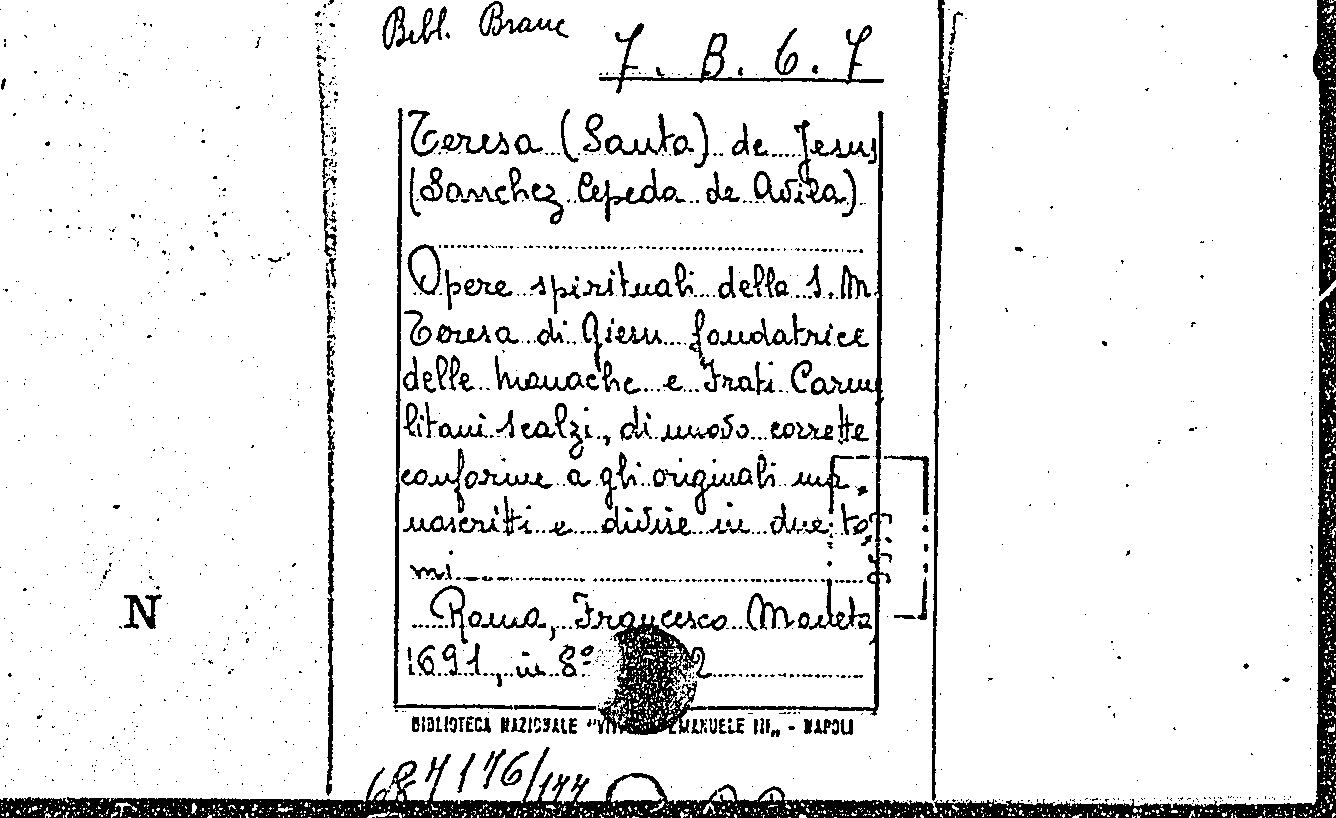 Bibl. Branc
7. B. 6. 7
Teresa (Santa) de Jesus
(Sanchez Cepeda de Avila)
Opere spirituali della S. M.
Teresa di Giesu fondatrice
delle Monache e Frati Carme
litani Scalzi, di nuovo corrette
conforme a gli originali ma-
noscritti e divise in due to
mi
Roma, Francesco Moneta,
1691, in 8º 2
N
BIBLIOTECA NAZIONALE "VITT EMANUELE III„ - NAPOLI
687176/177